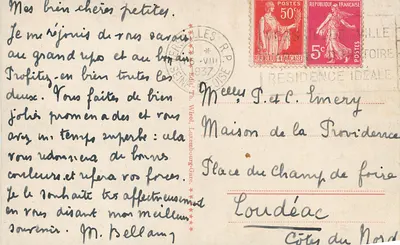 Mes bien chères petites.
Je me réjouis de vous savoir
au grand repos et au bon air
Profitez-en bien toutes les
deux. Vous faites de bien
jolies promenades et vous
avez un temps superbe: cela
vous redonnera de bonnes
couleurs et refera vos forces.
Je le souhaite très affectueusement
en vous disant mon meilleur
souvenir. M. Bellamy
R.P.
1937
RÉSIDENCE IDÉALE
50c
POSTES
RÉPUBLIQUE FRANÇAISE
5c
POSTES
Melles P. et C. Emery
Maison de la Providence
Place du Champ de foire
Loudéac
Côtes du Nord